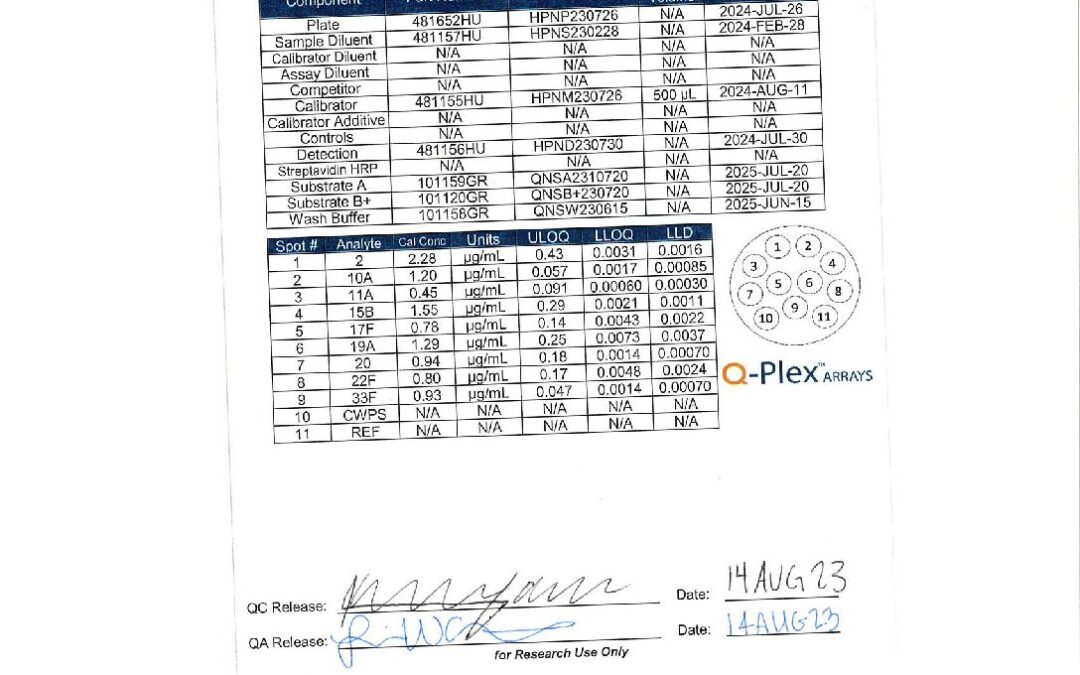 Component
Plate 481652HU HPNP230726 N/A 2024-JUL-26
Sample Diluent 481157HU HPNS230228 N/A 2024-FEB-28
Calibrator Diluent N/A N/A N/A N/A
Assay Diluent N/A N/A N/A N/A
Competitor N/A N/A N/A N/A
Calibrator 481155HU HPNM230726 500 µL 2024-AUG-11
Calibrator Additive N/A N/A N/A N/A
Controls N/A N/A N/A N/A
Detection 481156HU HPND230730 N/A 2024-JUL-30
Streptavidin HRP N/A N/A N/A N/A
Substrate A 101159GR QNSA2310720 N/A 2025-JUL-20
Substrate B+ 101120GR QNSB+230720 N/A 2025-JUL-20
Wash Buffer 101158GR QNSW230615 N/A 2025-JUN-15
Spot # Analyte Cal Conc Units ULOQ LLOQ LLD
1 2 2.28 µg/mL 0.43 0.0031 0.0016
2 10A 1.20 µg/mL 0.057 0.0017 0.00085
3 11A 0.45 µg/mL 0.091 0.00060 0.00030
4 15B 1.55 µg/mL 0.29 0.0021 0.0011
5 17F 0.78 µg/mL 0.14 0.0043 0.0022
6 19A 1.29 µg/mL 0.25 0.0073 0.0037
7 20 0.94 µg/mL 0.18 0.0014 0.00070
8 22F 0.80 µg/mL 0.17 0.0048 0.0024
9 33F 0.93 µg/mL 0.047 0.0014 0.00070
10 CWPS N/A N/A N/A N/A N/A
11 REF N/A N/A N/A N/A N/A
1 2
3 4
5 6
7 8
9
10 11
Q-Plex™ ARRAYS
QC Release: Date: 14 AUG 23
QA Release: Date: 14AUG23
for Research Use Only